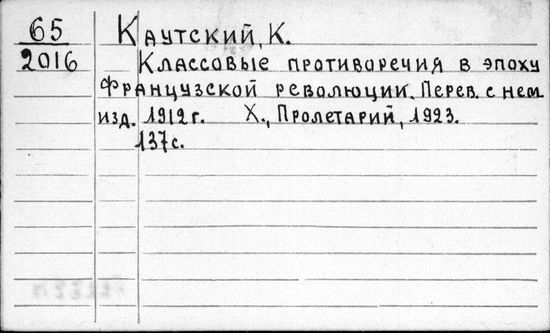 65
2016
Каутский, К.
Классовые противоречия в эпоху
Французской революции. Перев. с нем.
изд. 1912 г. Х., Пролетарий, 1923.
137 с.